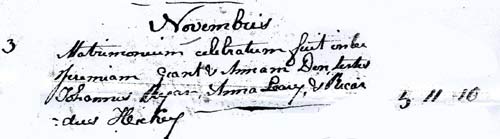 Novembris
3 Matrimonium celebratum fuit inter
Grant & Annam Den testes
Johannes Ryan, Anna Leary, & Ricar
-dus Hickey 5 11 16